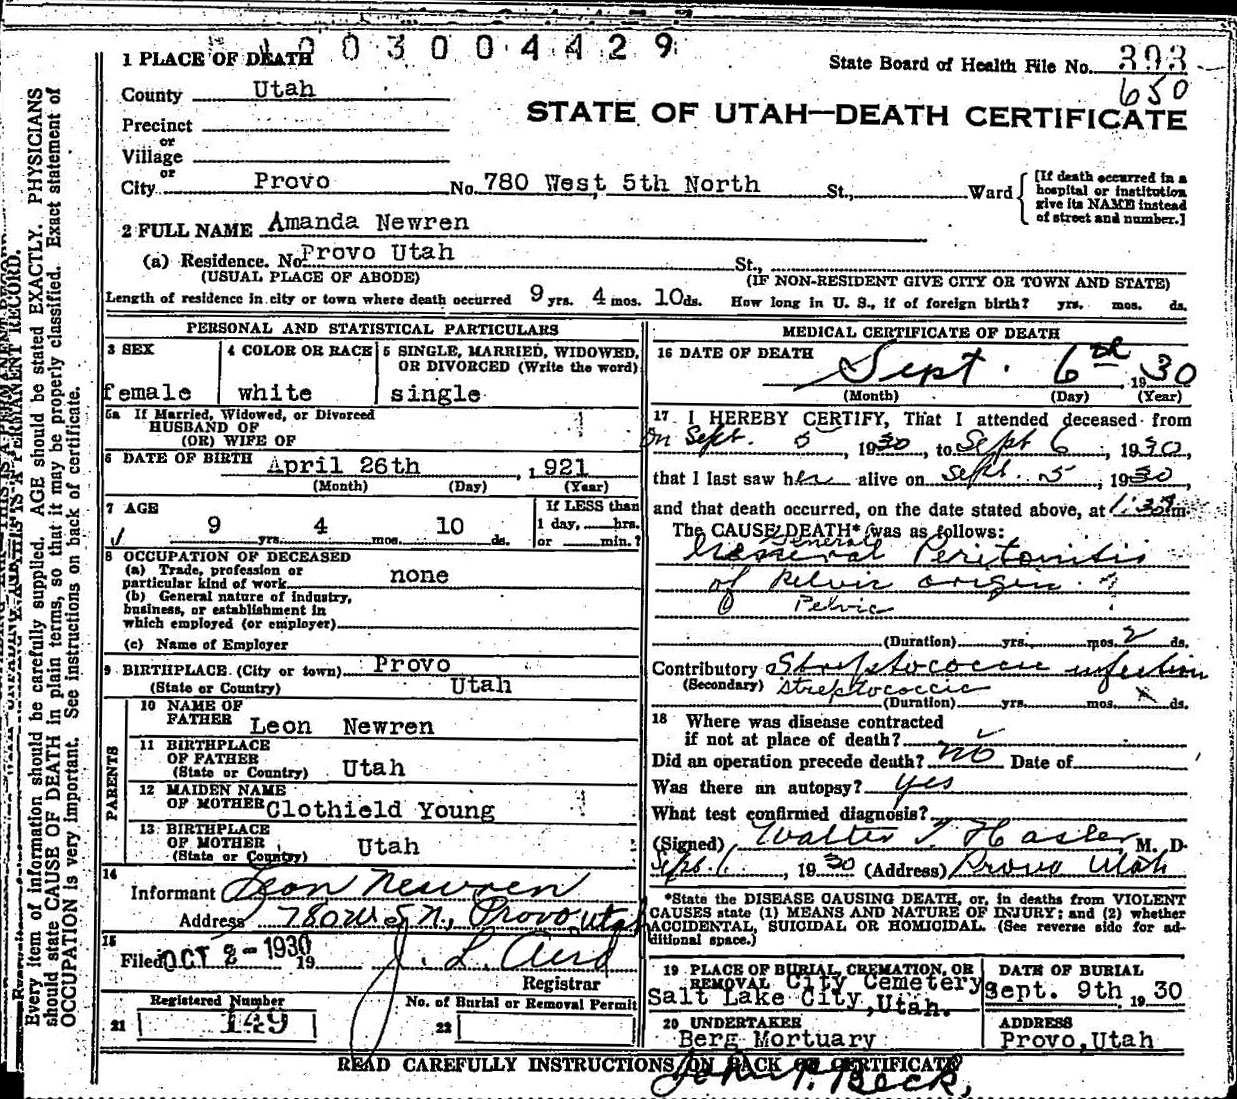 1003004429
1 PLACE OF DEATH
State Board of Health File No. 393
650
County Utah
STATE OF UTAH—DEATH CERTIFICATE
Precinct
or
Village
or
City Provo No. 780 West, 5th North St., Ward
[If death occurred in a
hospital or institution
give its NAME instead
of street and number.]
2 FULL NAME Amanda Newren
(a) Residence. No. Provo Utah St.,
(USUAL PLACE OF ABODE) (IF NON-RESIDENT GIVE CITY OR TOWN AND STATE)
Length of residence in city or town where death occurred 9 yrs. 4 mos. 10 ds. How long in U. S., if of foreign birth? yrs. mos. ds.
PERSONAL AND STATISTICAL PARTICULARS
3 SEX
female
4 COLOR OR RACE
white
5 SINGLE, MARRIED, WIDOWED,
OR DIVORCED (Write the word)
single
5a If Married, Widowed, or Divorced
HUSBAND OF
(OR) WIFE OF
6 DATE OF BIRTH April 26th, 1921
(Month) (Day) (Year)
7 AGE
9 yrs. 4 mos. 10 ds.
If LESS than
1 day, hrs.
or min.?
8 OCCUPATION OF DECEASED
(a) Trade, profession or
particular kind of work none
(b) General nature of industry,
business, or establishment in
which employed (or employer)
(c) Name of Employer
9 BIRTHPLACE (City or town) Provo
(State or Country) Utah
PARENTS
10 NAME OF
FATHER Leon Newren
11 BIRTHPLACE
OF FATHER
(State or Country) Utah
12 MAIDEN NAME
OF MOTHER Clothield Young
13 BIRTHPLACE
OF MOTHER
(State or Country) Utah
14
Informant Leon Newren
Address 780 W 5 N., Provo, Utah
15
Filed OCT 2-1930 19
J. L. Aird
Registrar
Registered Number
21 149
No. of Burial or Removal Permit
22
MEDICAL CERTIFICATE OF DEATH
16 DATE OF DEATH
Sept. 6th 1930
(Month) (Day) (Year)
17 I HEREBY CERTIFY, That I attended deceased from
on Sept. 5, 1930, to Sept 6, 1930,
that I last saw her alive on Sept. 5, 1930
and that death occurred, on the date stated above, at 1:30 m
The CAUSE DEATH* was as follows:
General
General Peritonitis
of pelvic origin ?
Pelvic
(Duration) yrs. mos. 2 ds.
Contributory Streptococcic infection
(Secondary) Streptococcic
(Duration) yrs. mos. ds.
18 Where was disease contracted
if not at place of death?
Did an operation precede death? no Date of
Was there an autopsy? yes
What test confirmed diagnosis?
(Signed) Walter T. Hasler, M. D.
Sept. 6, 1930 (Address) Provo Utah
*State the DISEASE CAUSING DEATH, or, in deaths from VIOLENT
CAUSES state (1) MEANS AND NATURE OF INJURY; and (2) whether
ACCIDENTAL, SUICIDAL OR HOMICIDAL. (See reverse side for ad-
ditional space.)
19 PLACE OF BURIAL, CREMATION, OR
REMOVAL City Cemetery
Salt Lake City, Utah.
DATE OF BURIAL
Sept. 9th 1930
20 UNDERTAKER
Berg Mortuary
ADDRESS
Provo, Utah
READ CAREFULLY INSTRUCTIONS ON BACK OF CERTIFICATE
John P. Beck,
Every item of information should be carefully supplied. AGE should be stated EXACTLY. PHYSICIANS
should state CAUSE OF DEATH in plain terms, so that it may be properly classified. Exact statement of
OCCUPATION is very important. See instructions on back of certificate.